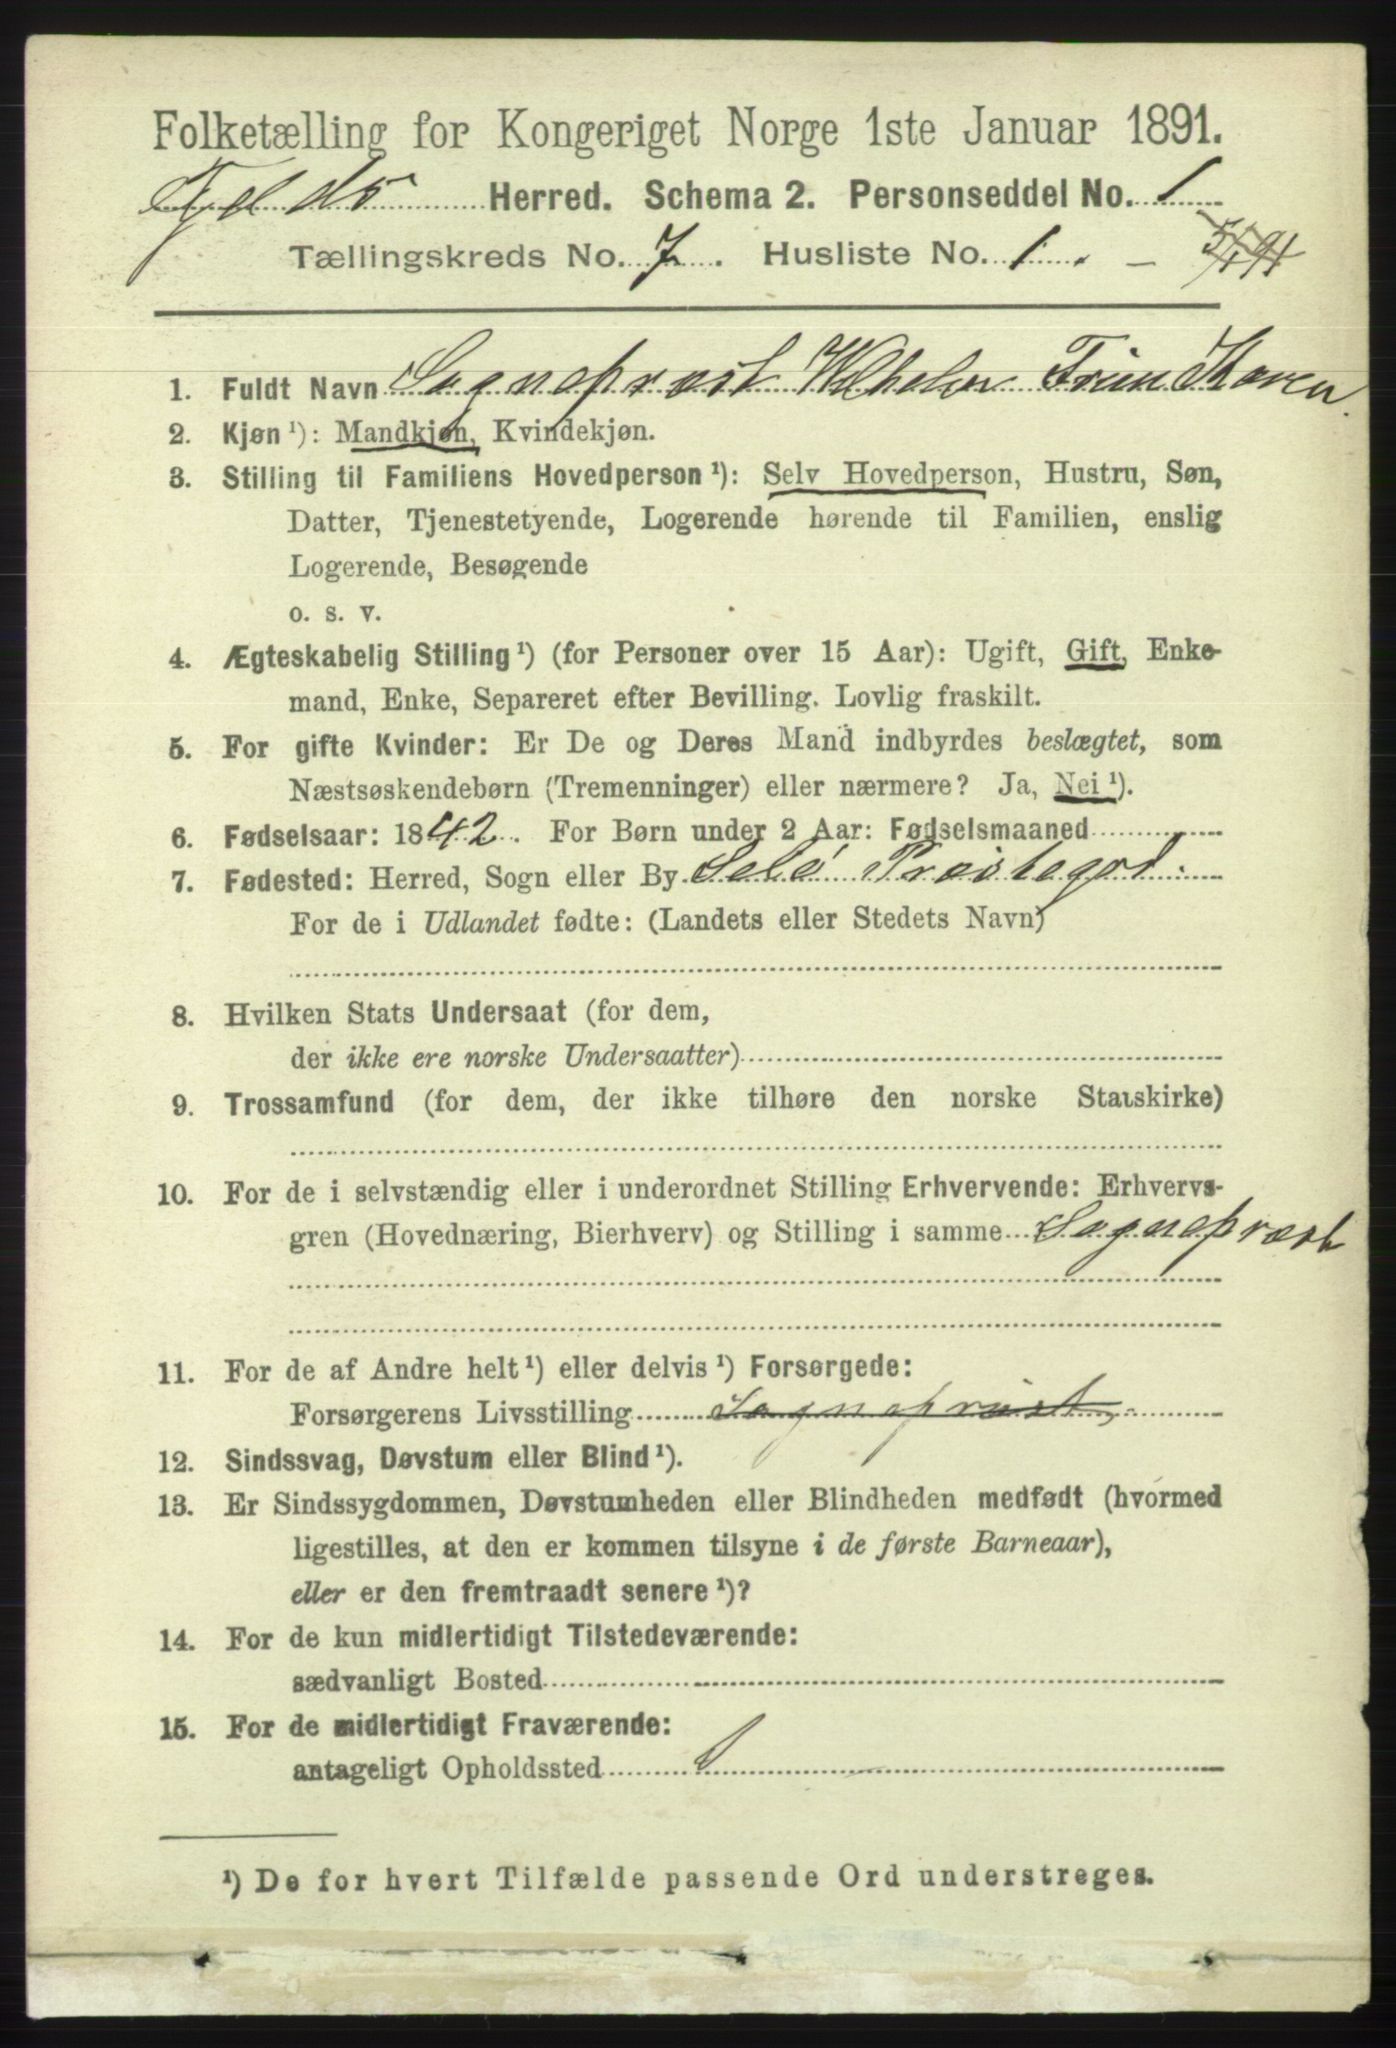 Folketælling for Kongeriget Norge 1ste Januar 1891.
Herred. Schema 2. Personseddel No. 1
Tællingskreds No. 7. Husliste No. 1. – 5/1 91
1. Fuldt Navn Sogneprest Wilhelm Frim Koren.
2. Kjøn ¹): Mandkjøn, Kvindekjøn.
3. Stilling til Familiens Hovedperson ¹): Selv Hovedperson, Hustru, Søn,
Datter, Tjenestetyende, Logerende hørende til Familien, enslig
Logerende, Besøgende
o. s. v.
4. Ægteskabelig Stilling ¹) (for Personer over 15 Aar): Ugift, Gift, Enke-
mand, Enke, Separeret efter Bevilling. Lovlig fraskilt.
5. For gifte Kvinder: Er De og Deres Mand indbyrdes beslægtet, som
Næstsøskendebørn (Tremenninger) eller nærmere? Ja, Nei ¹).
6. Fødselsaar: 1842. For Børn under 2 Aar: Fødselsmaaned
7. Fødested: Herred, Sogn eller By Selø Præstegd.
For de i Udlandet fødte: (Landets eller Stedets Navn)
8. Hvilken Stats Undersaat (for dem,
der ikke ere norske Undersaatter)
9. Trossamfund (for dem, der ikke tilhøre den norske Statskirke)
10. For de i selvstændig eller i underordnet Stilling Erhvervende: Erhvervs-
gren (Hovednæring, Bierhverv) og Stilling i samme Sogneprest
11. For de af Andre helt ¹) eller delvis ¹) Forsørgede:
Forsørgerens Livsstilling Sogneprest,
12. Sindssvag, Døvstum eller Blind ¹).
13. Er Sindssygdommen, Døvstumheden eller Blindheden medfødt (hvormed
ligestilles, at den er kommen tilsyne i de første Barneaar),
eller er den fremtraadt senere ¹)?
14. For de kun midlertidigt Tilstedeværende:
sædvanligt Bosted
15. For de midlertidigt Fraværende:
antageligt Opholdssted
¹) De for hvert Tilfælde passende Ord understreges.